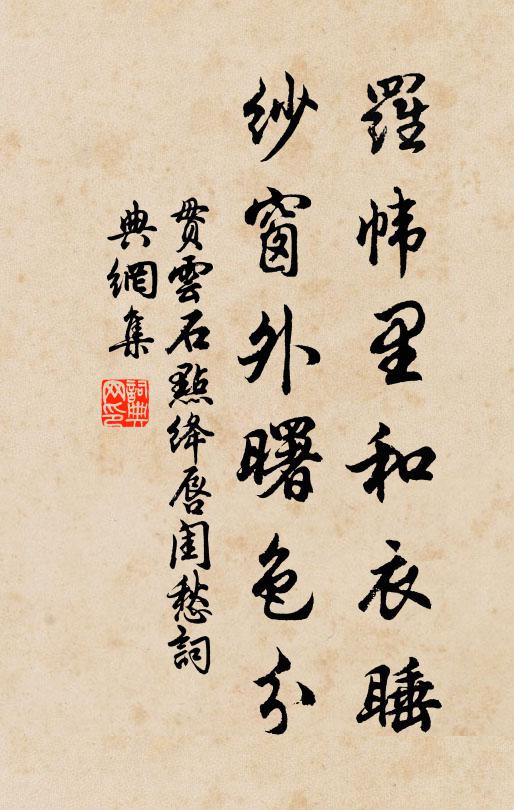 羅帏里和衣睡
紗窗外曙色分
贯雲石點绛唇闺愁詞
典網集
詞典
网印